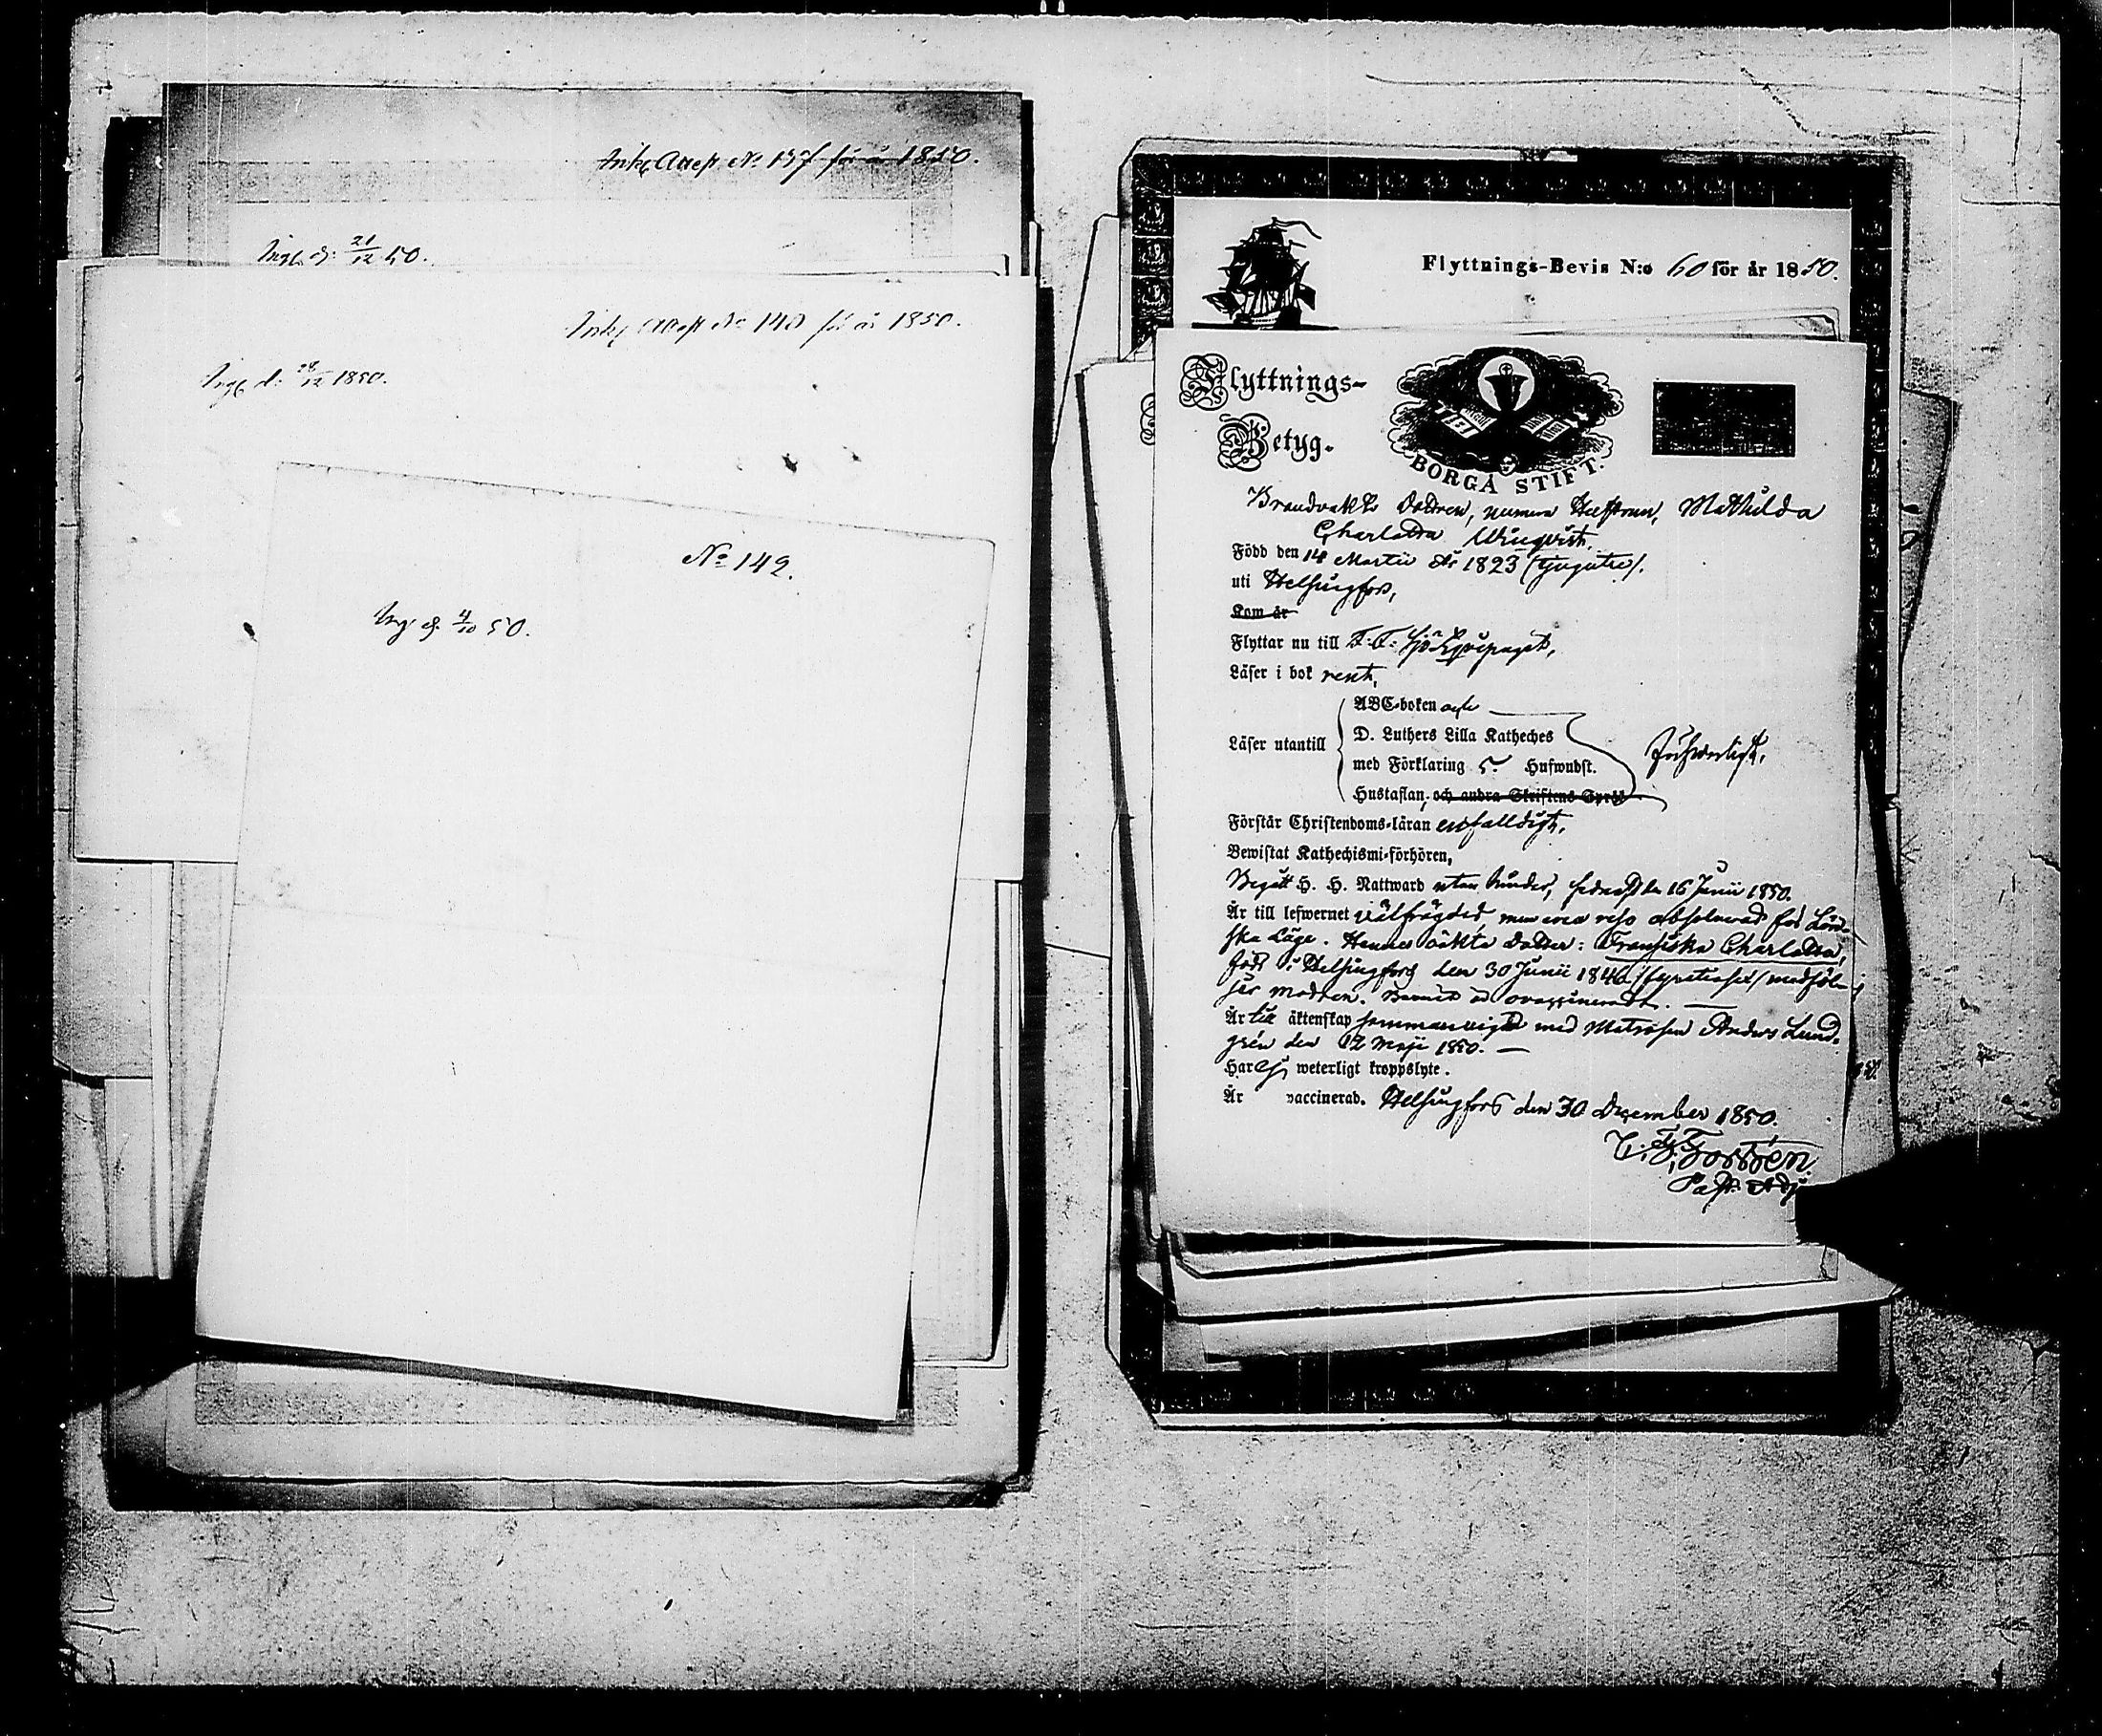 Ink. Attest No 137 för år 1850.
Ingk. d. 21/12 50.
Ink. Attest No 140 för år 1850.
Ingk. d. 28/12 1850.
No 142.
Ing. d. 4/10 50.
Flyttnings-Bevis N:o 60 för år 1850.
Flyttnings-
Betyg.
BORGÅ STIFT.
Brandvakts Dottren, numera Hustrun, Mathilda
Charlotta Winqvist,
Född den 14 Martii År 1823 (tjugutre).
uti Helsingfors,
Kom år
Flyttar nu till F. F. Sjö Equipaget,
Läser i bok rent,
ABC-boken och
D. Luthers Lilla Katheches
Läser utantill
med Förklaring 5. Hufwudst.
Hustaflan, och andra Skriftens Språk
Förswarligt.
Förstår Christendoms-läran enfalldigt,
Bewistat Kathechismi-förhören,
Begått H. H. Nattward utan hinder, sednast den 16 Junii 1850.
Är till lefwernet välfrägdad men ena resa absolverad för Lönd-
ska Läge. Hennes oäkta dotter: Fransiska Charlotta,
född i Helsingfors den 30 Junii 1846 (fyratiosex) medföl-
jer modren. Barnet är ovaccineradt.
Är till äktenskap sammanvigd med Matrosen Anders Lund-
grén den 12 Maji 1850. —
Har ej weterligt kroppslyte.
Är vaccinerad. Helsingfors den 30 December 1850.
C. F. Forstén.
Past. Adj.